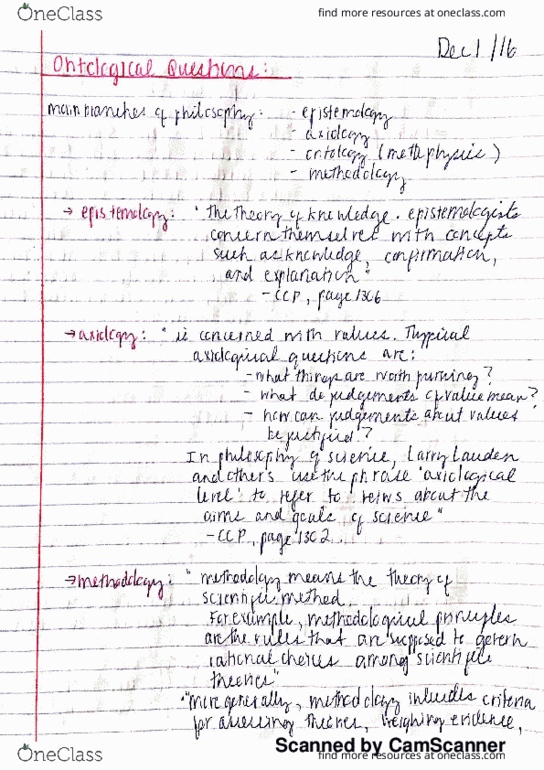 OneClass
find more resources at oneclass.com
Dec 1 /16
Ontological Questions:
main branches of philosophy: - epistemology
- axiology
- ontology (metaphysics)
- methodology
→ epistemology: " The theory of knowledge. epistemologists
concern themselves with concepts
such as knowledge, confirmation,
and explanation"
- CCP, page 1306
→ axiology: " is concerned with values. Typical
axiological questions are:
- what things are worth pursuing?
- what do judgements of value mean?
- how can judgements about values
be justified?
In philosophy of science, Larry Laudan
and others use the phrase 'axiological
level' to refer to views about the
aims and goals of science"
- CCP, page 1302
→ methodology: " methodology means the theory of
scientific method.
For example, methodological principles
are the rules that are supposed to govern
rational choices among scientific
theories"
"more generally, methodology includes criteria
for assessing theories, weighing evidence,
Scanned by CamScanner
OneClass
find more resources at oneclass.com